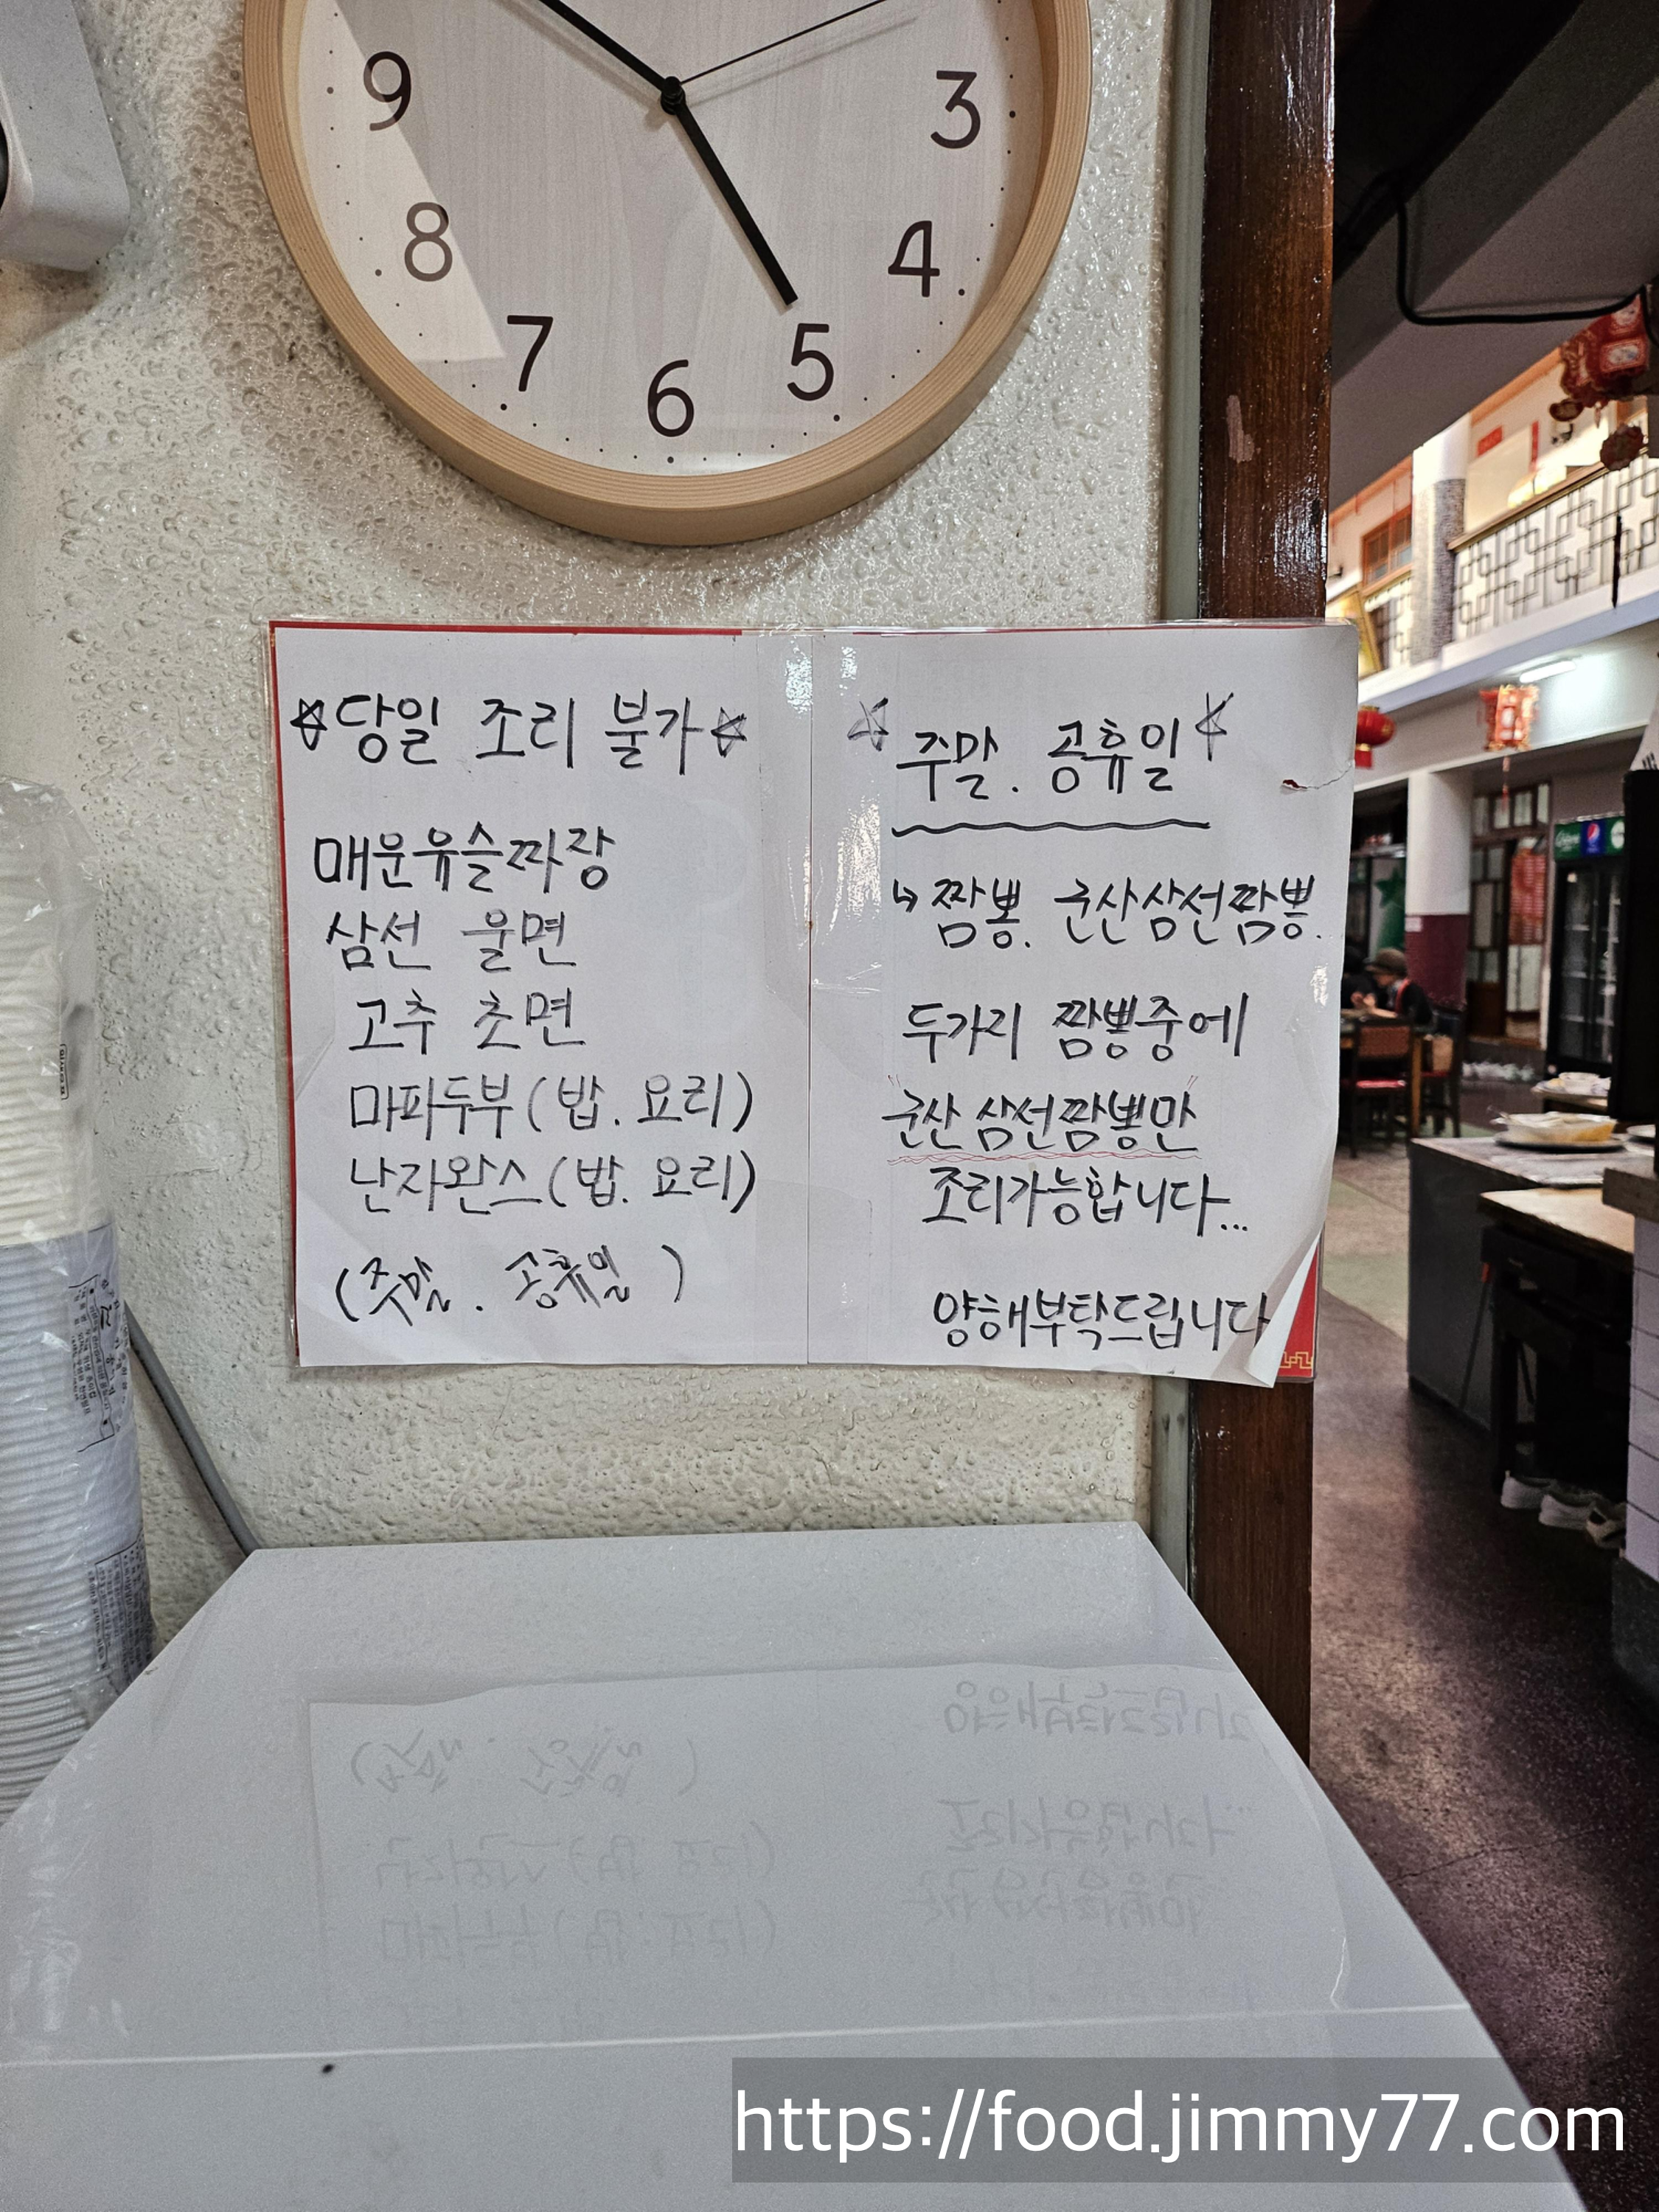 9
3
8
4
7
5
6
☆당일 조리 불가☆
매운유슬짜장
삼선 울면
고추 초면
마파두부(밥.요리)
난자완스(밥.요리)
(주말.공휴일)
☆주말.공휴일☆
↳짬뽕.군산삼선짬뽕.
두가지 짬뽕중에
"군산삼선짬뽕만"
조리가능합니다...
양해부탁드립니다
https://food.jimmy77.com